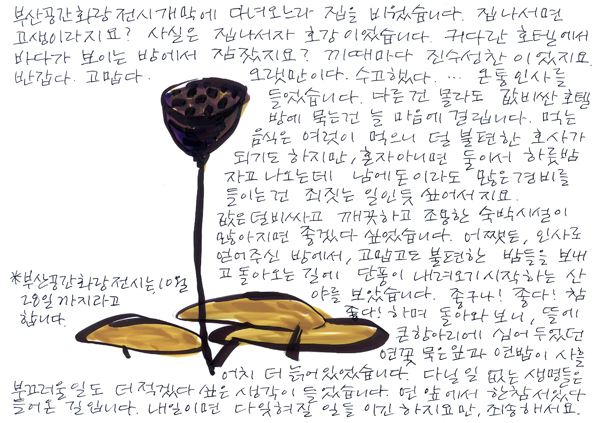 부산공간화랑 전시개막에 다녀오느라 집을 비웠습니다. 집나서면
고생이라지요? 사실은 집나서자 호강이었습니다. 커다란 호텔에서
바다가 보이는 방에서 잠잤지요? 끼때마다 진수성찬이었지요.
반갑다. 고맙다. 오랫만이다. 수고했다. … 온통 인사를
들었습니다. 다른건 몰라도 값비싼 호텔
방에 묵는건 늘 마음에 걸립니다. 먹는
음식은 여럿이 먹으니 덜 불편한 호사가
되기도 하지만, 혼자아니면 둘이서 하룻밤
자고 나오는데 남에 돈이라도 많은 경비를
들이는건 죄짓는 일인듯 싶어서지요.
값은 덜비싸고 깨끗하고 조용한 숙박시설이
많아지면 좋겠다 싶었습니다. 어쨌든, 인사로
얻어주신 방에서, 고맙고도 불편한 밤들을 보내
고 돌아오는 길에 단풍이 내려오기 시작하는 산
야를 보았습니다. 좋구나! 좋다! 참
좋다! 하며 돌아와 보니, 뜰에
큰항아리에 심어두었던
연꽃 묵은잎과 연밥이 사흘
어치 더 늙어있었습니다. 다닐 일 없는 생명들은
부끄러울일도 더 적겠다 싶은 생각이 들었습니다. 연 앞에서 한참 서있다
들어온 길입니다. 내일이면 다 잊혀질 일들 이긴 하지요만, 죄송해서요.
*부산공간화랑전시는, 10월
28일 까지라고
합니다.